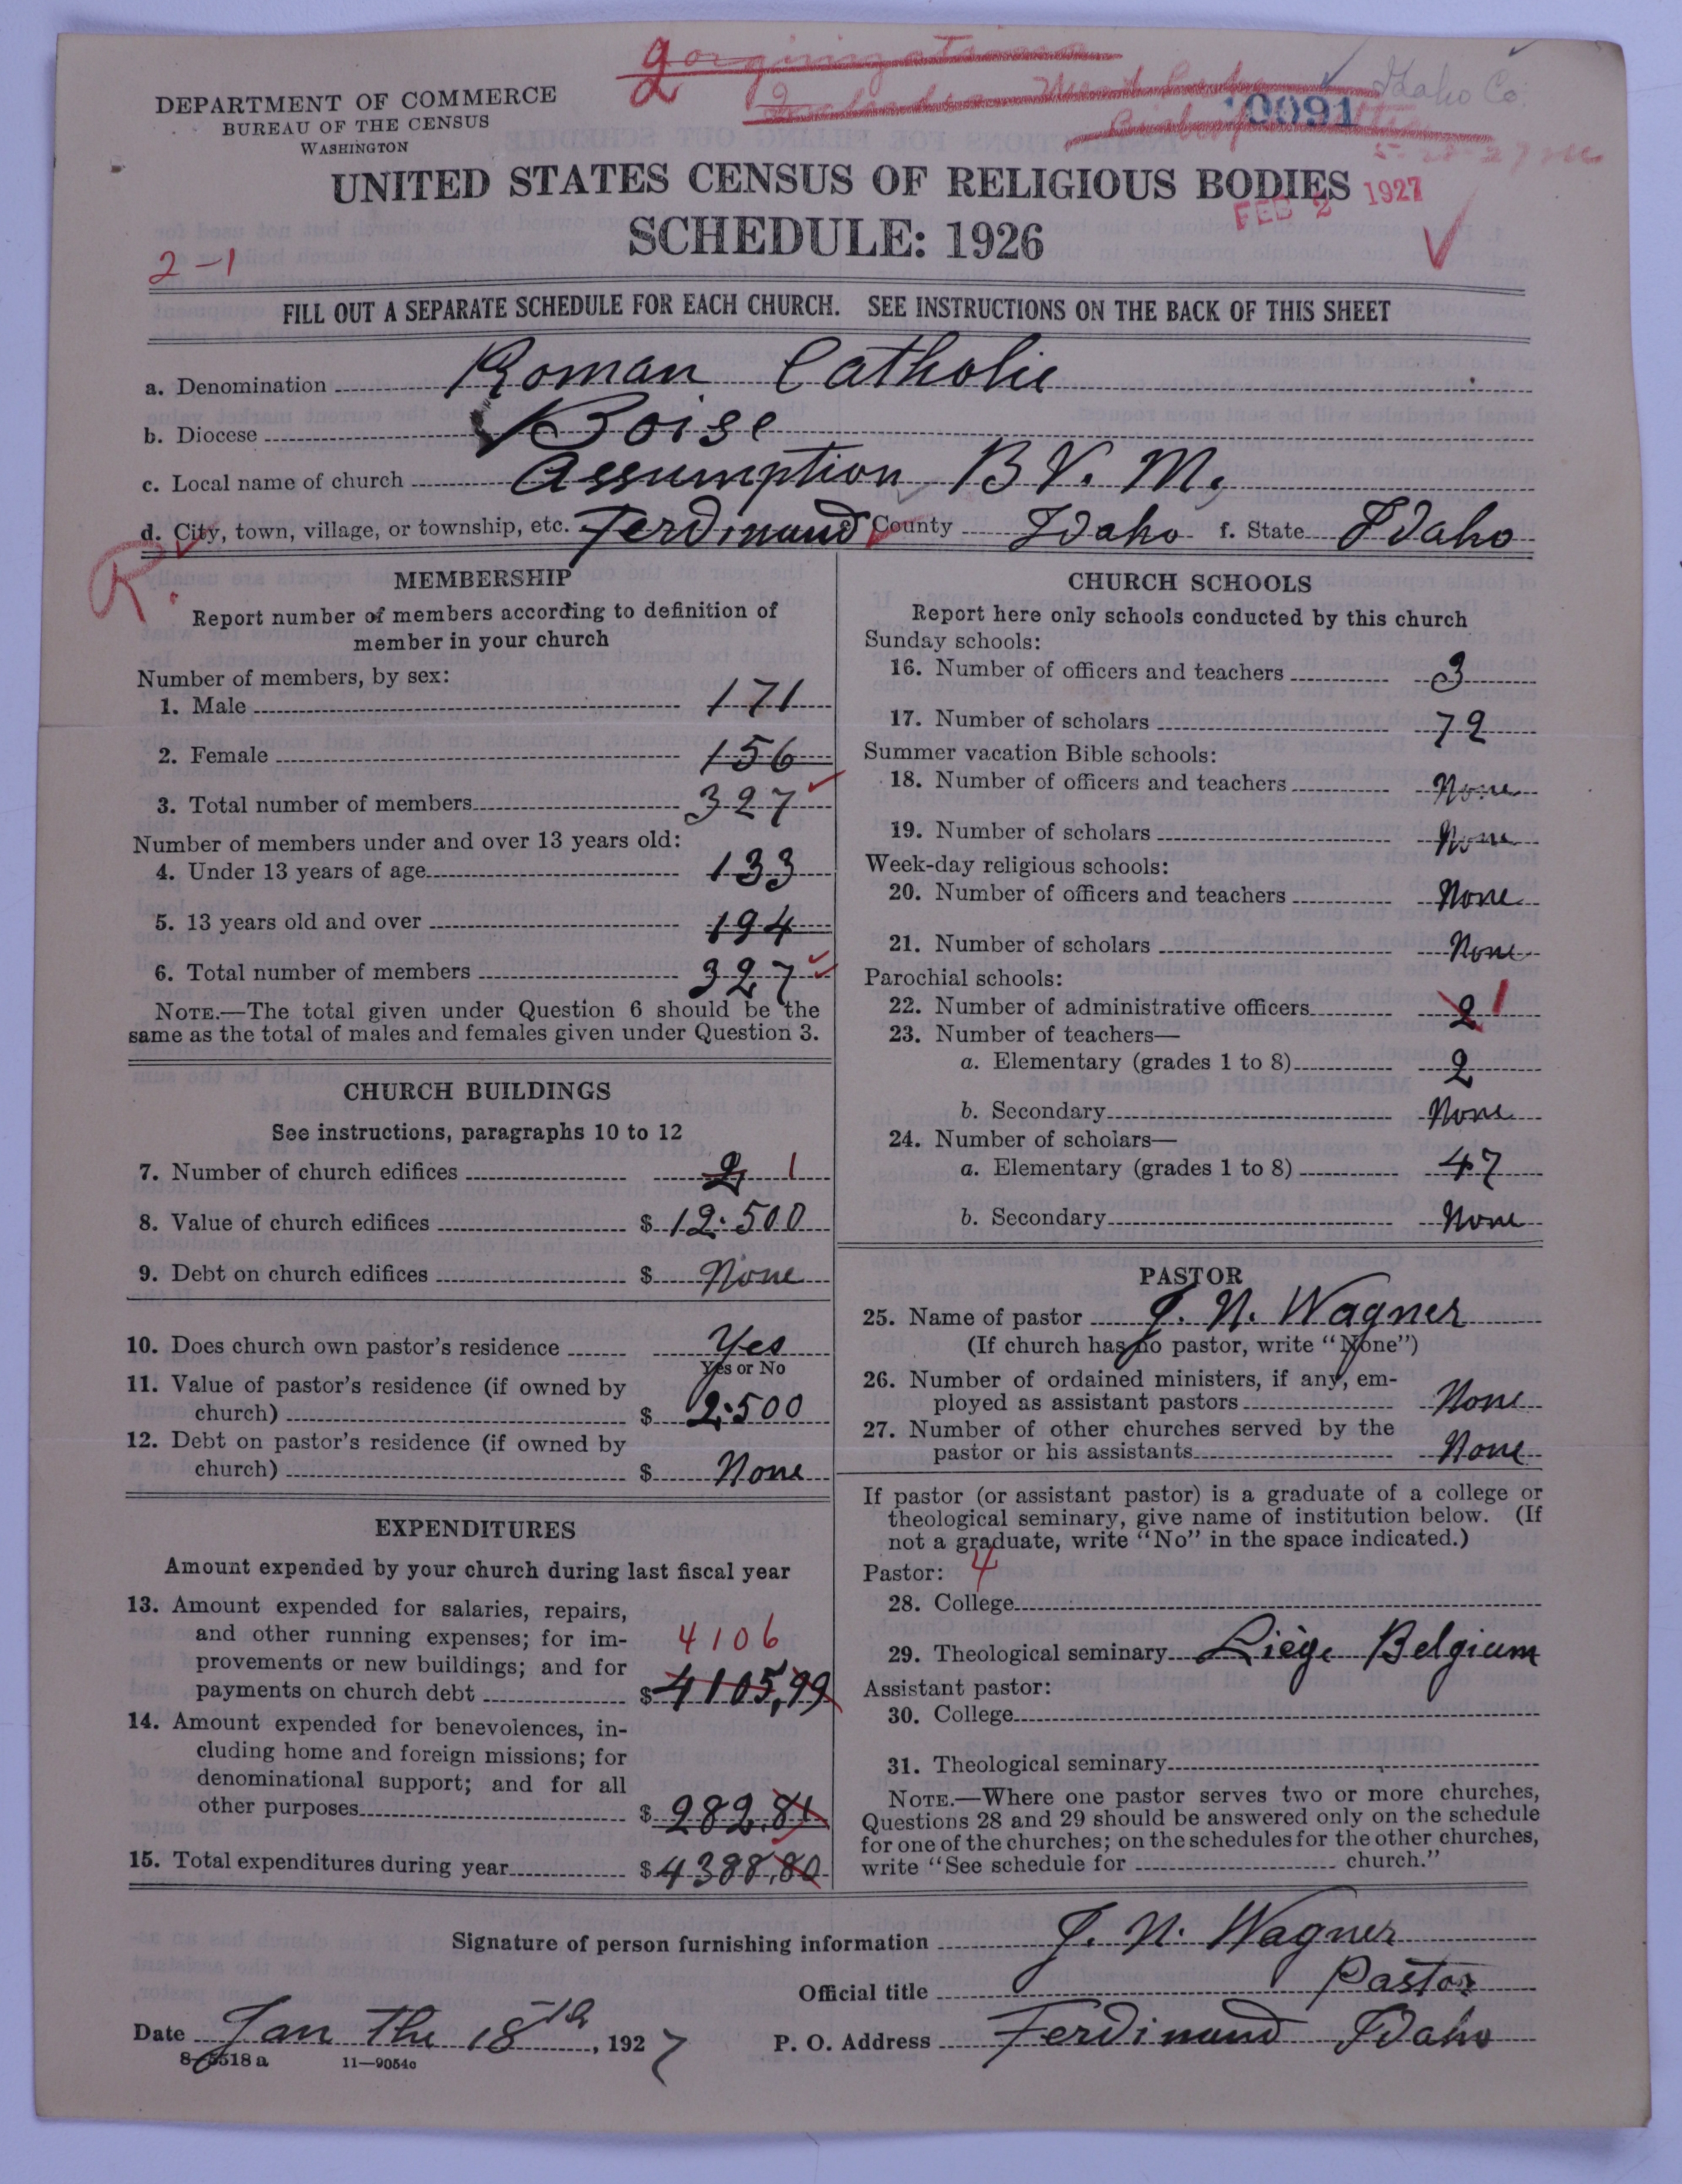 2 organizations
Idaho Co.
10091
DEPARTMENT OF COMMERCE
BUREAU OF THE CENSUS
WASHINGTON
UNITED STATES CENSUS OF RELIGIOUS BODIES
FEB 2 1927
SCHEDULE: 1926
2-1
FILL OUT A SEPARATE SCHEDULE FOR EACH CHURCH. SEE INSTRUCTIONS ON THE BACK OF THIS SHEET
a. Denomination Roman Catholic
b. Diocese Boise
c. Local name of church Assumption B.V.M.
d. City, town, village, or township, etc. Ferdinand County Idaho f. State Idaho
R.
MEMBERSHIP
Report number of members according to definition of
member in your church
Number of members, by sex:
1. Male 171
2. Female 156
3. Total number of members 327
Number of members under and over 13 years old:
4. Under 13 years of age 133
5. 13 years old and over 194
6. Total number of members 327
NOTE.—The total given under Question 6 should be the
same as the total of males and females given under Question 3.
CHURCH BUILDINGS
See instructions, paragraphs 10 to 12
7. Number of church edifices 2 1
8. Value of church edifices $ 12.500
9. Debt on church edifices $ None
10. Does church own pastor's residence Yes
Yes or No
11. Value of pastor's residence (if owned by
church) $ 2.500
12. Debt on pastor's residence (if owned by
church) $ None
EXPENDITURES
Amount expended by your church during last fiscal year
13. Amount expended for salaries, repairs,
and other running expenses; for im- 4106
provements or new buildings; and for
payments on church debt $ 4105,99
14. Amount expended for benevolences, in-
cluding home and foreign missions; for
denominational support; and for all
other purposes $ 282.81
15. Total expenditures during year $ 4388,80
CHURCH SCHOOLS
Report here only schools conducted by this church
Sunday schools:
16. Number of officers and teachers 3
17. Number of scholars 72
Summer vacation Bible schools:
18. Number of officers and teachers None
19. Number of scholars None
Week-day religious schools:
20. Number of officers and teachers None
21. Number of scholars None
Parochial schools:
22. Number of administrative officers 2 1
23. Number of teachers—
a. Elementary (grades 1 to 8) 2
b. Secondary None
24. Number of scholars—
a. Elementary (grades 1 to 8) 47
b. Secondary None
PASTOR
25. Name of pastor J. N. Wagner
(If church has no pastor, write "None")
26. Number of ordained ministers, if any, em-
ployed as assistant pastors None
27. Number of other churches served by the
pastor or his assistants None
If pastor (or assistant pastor) is a graduate of a college or
theological seminary, give name of institution below. (If
not a graduate, write "No" in the space indicated.)
Pastor: 4
28. College
29. Theological seminary Liège Belgium
Assistant pastor:
30. College
31. Theological seminary
NOTE.—Where one pastor serves two or more churches,
Questions 28 and 29 should be answered only on the schedule
for one of the churches; on the schedules for the other churches,
write "See schedule for church."
Signature of person furnishing information J. N. Wagner
Official title Pastor
Date Jan the 18th, 1927 P. O. Address Ferdinand Idaho
8-5518 a 11—9054c